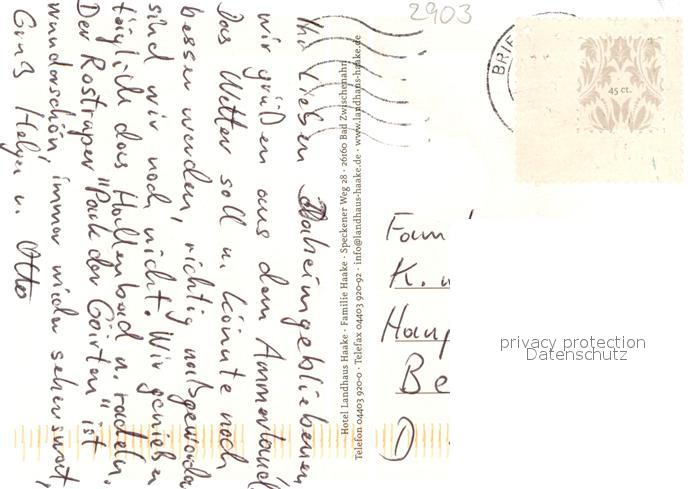 2903
BRIE
45 ct.
Ihr Lieben Daheimgebliebenen
wir grüßen aus dem Ammerland
Das Wetter soll u. könnte noch
besser werden, richtig naßgeworden
sind wir noch nicht. Wir genießen
täglich das Hallenbad u. radeln.
Der Rostruper "Park der Gärten" ist
wunderschön, immer wieder sehenswert,
Gruß Helga u. Otto
Hotel Landhaus Haake · Familie Haake · Speckener Weg 28 · 26160 Bad Zwischenahn
Telefon 04403 920-0 · Telefax 04403 920-92 · info@landhaus-haake.de · www.landhaus-haake.de
Fam
K. u
Haup
Be
D
privacy protection
Datenschutz